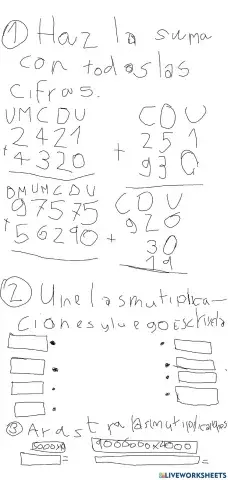 ① Haz la suma
con todas las
cifras.
UMCDU CDU
2421 251
+ 4320 + 930
DMUMCDU CDU
97575 920
+ 56290 + 30
19
② Une las mutiplica-
ciones y luego Escribela
③ Arastra las mutiplicaciones
5000x1 9000000x4000
= =
LIVEWORKSHEETS